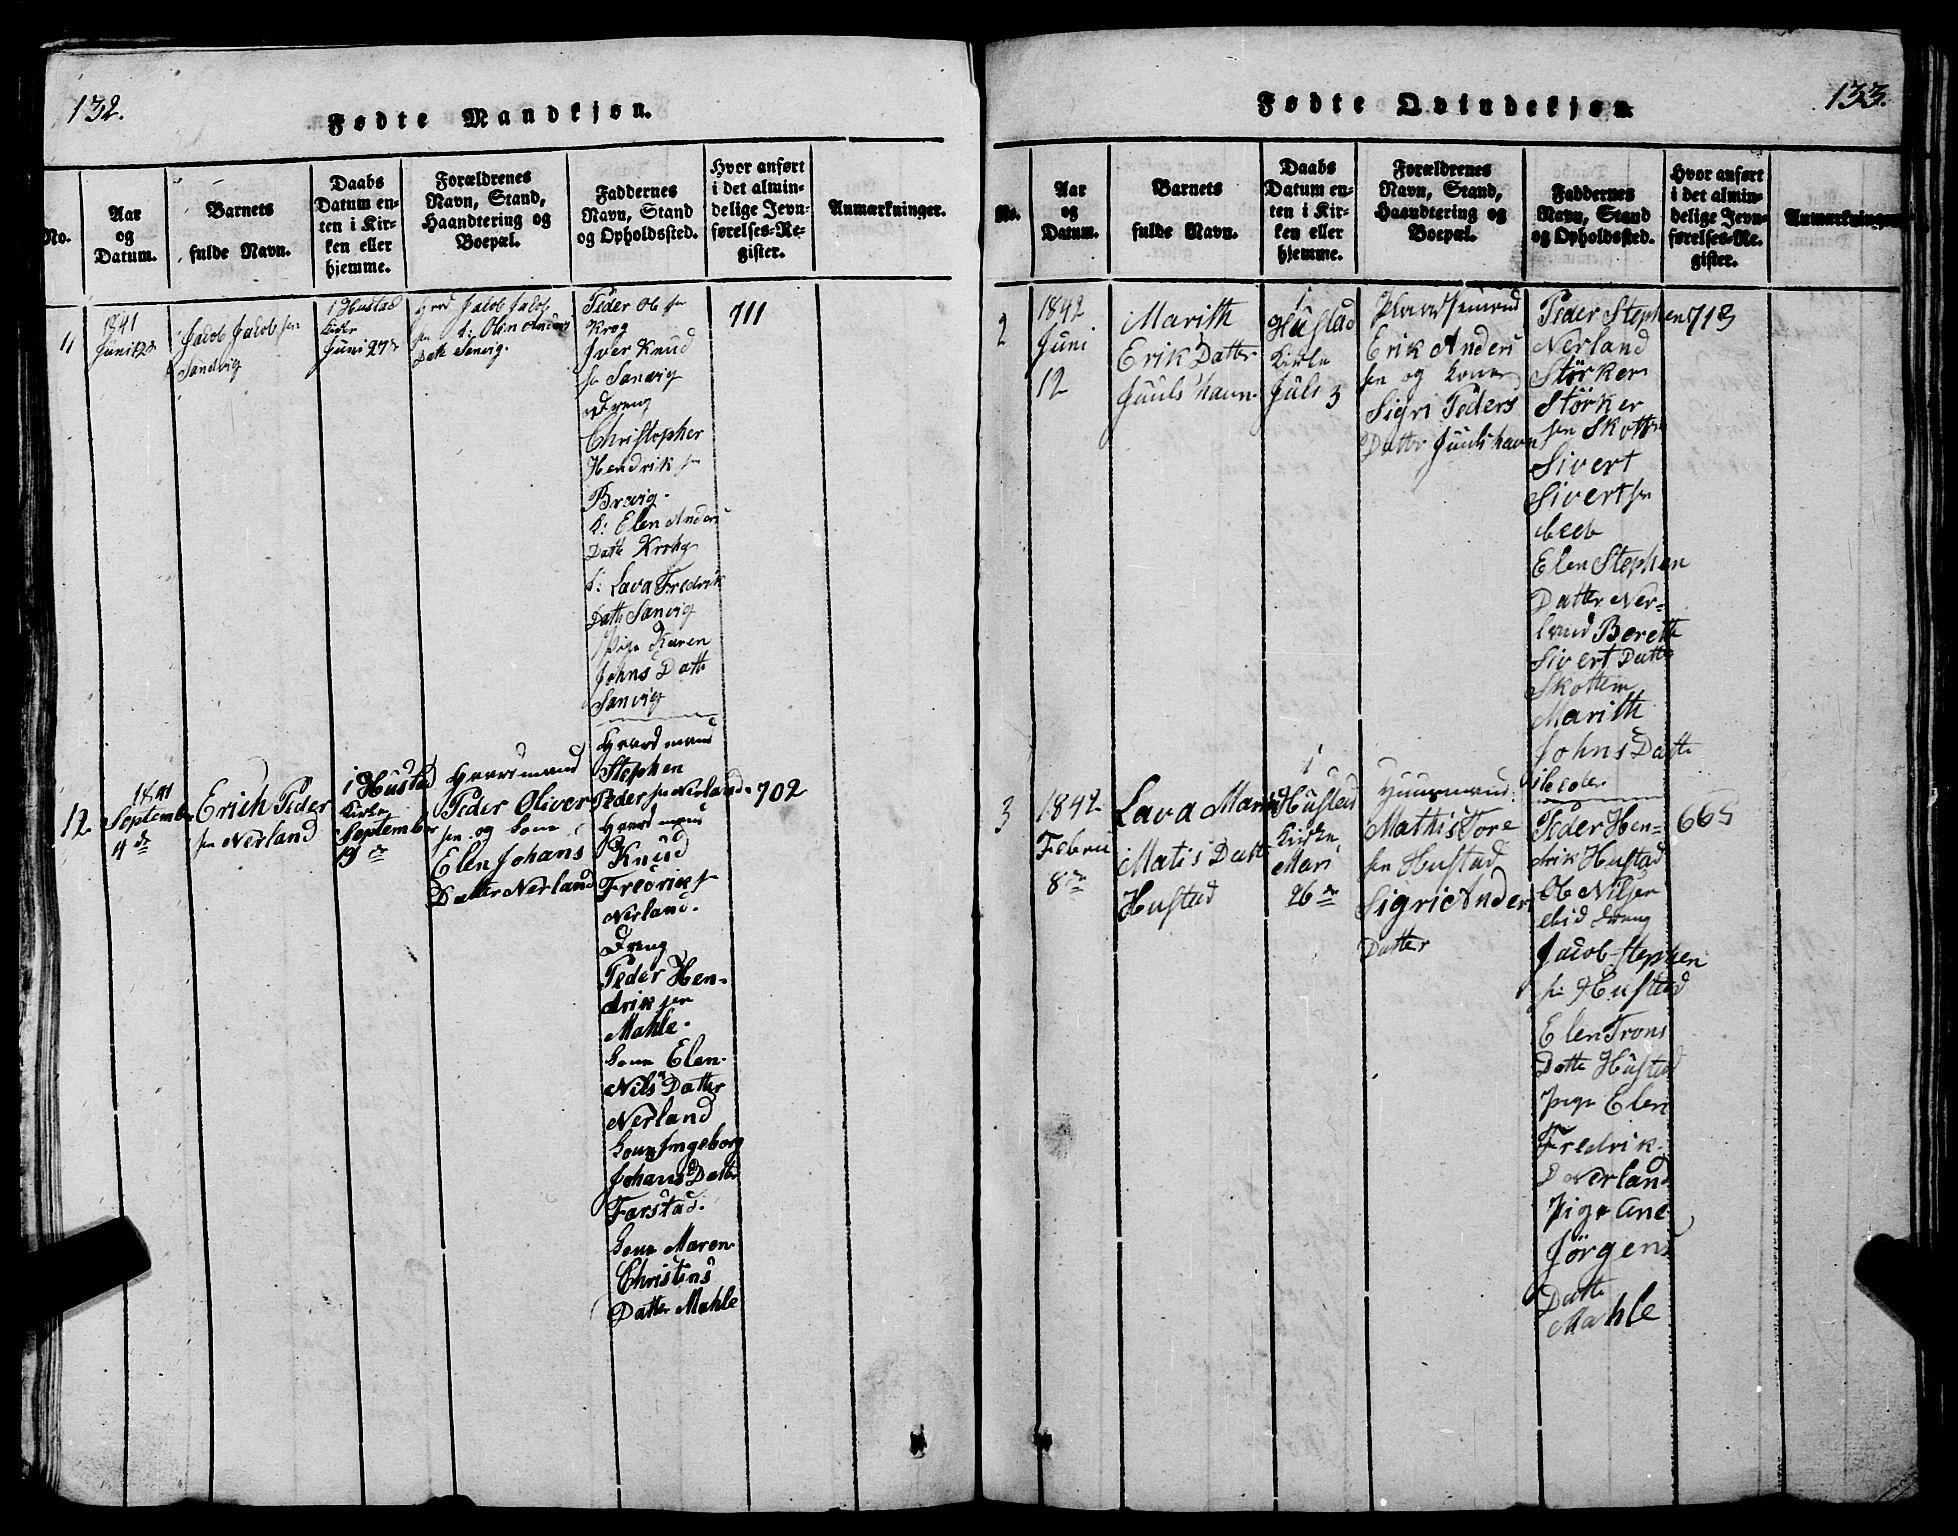 132.
Fødte Mandkjøn.
No.
Aar
og
Datum.
Barnets
fulde Navn.
Daabs
Datum en-
ten i Kir-
ken eller
hjemme.
Forældrenes
Navn, Stand,
Haandtering og
Boepæl.
Faddernes
Navn, Stand
og Opholdssted.
Hvor anført
i det almin-
delige Jevn-
førelses-Re-
gister.
Anmærkninger.
11
1841
Juni
Jacob Jacob sen
Sandvig
i Hustad
Kirke
Juni 27de
Jacob Jacob
sen K: Olin Anders
Datte Sanvig.
Peder Ob sen
Krog
Iver Knud
sen Sanvig
Dreng
Christopher
Hendrik sen
Brevig.
K: Elen Anders
Datte Krohg
K: Lava Fredrik
Datte Sanvig
Pige Karen
Johns Datte
Sanvig
711
12
1841
September
4de
Erich Peder
sen Nerland
i Hustad
Kirke
September
19de
Gaardmand
Peder Oliver
sen og Kone
Elen Johans
Datter Nerland
Gaardmand
Stephen
Peder sen Nerland
Gaardmand
Knud
Fredrik sen
Nerland.
Dreng
Peder Hen-
drik sen
Mahle.
Kone Elen
Nils Datter
Nerland
Kone Ingeborg
Johans Datter
Farstad.
Kone Maren
Christens
Datter Mahle
702
133.
Fødte Qvindekjøn.
No.
Aar
og
Datum.
Barnets
fulde Navn.
Daabs
Datum en-
ten i Kir-
ken eller
hjemme.
Forældrenes
Navn, Stand,
Haandtering og
Boepæl.
Faddernes
Navn, Stand
og Opholdssted.
Hvor anført
i det almin-
delige Jevn-
førelses-Re-
gister.
Anmærkninger
2
1842
Juni
12
Marith
Erik Datter
Juuls havn
i
Hustad
Kirke
Juli 3
Pladsemand
Erik Anders
sen og Kone
Sigri Peders
Datter Juulshavn
Peder Stephen
Nerland
Störker
Störker
sen Skottem
Sivert
Sivert sen
Elen Stephen
Datter Ner-
land Berethe
Sivert Datter
Skottem
Marith
Johns Datte
713
3
1842
Febru
8de
Lava Maria
Matis Datte
Hustad
i
Hustad
Kirke
Mari
26de
Huusmand
Mathis Tore
sen Hustad
Sigri Anders
Datter
Peder Hen-
drik Hustad
Ob Nilsen
ibid Dreng
Jacob Stephen
sen Hustad
Elen Trons
Datte Hustad
Pige Elen
Fredrik
D Nerland
Pige Ane
Jörgens
Datte
Mahle
665